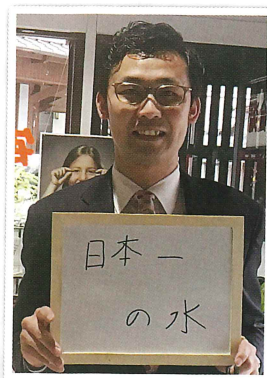 日本一
の水